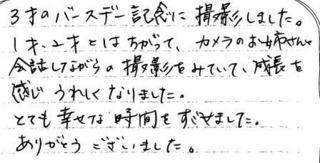 3才のバースデー記念に撮影しました。
1才、2才とはちがって、カメラのお姉さんと
会話しながらの撮影をみていて、成長を
感じうれしくなりました。
とても幸せな時間をすごせました。
ありがとうございました。